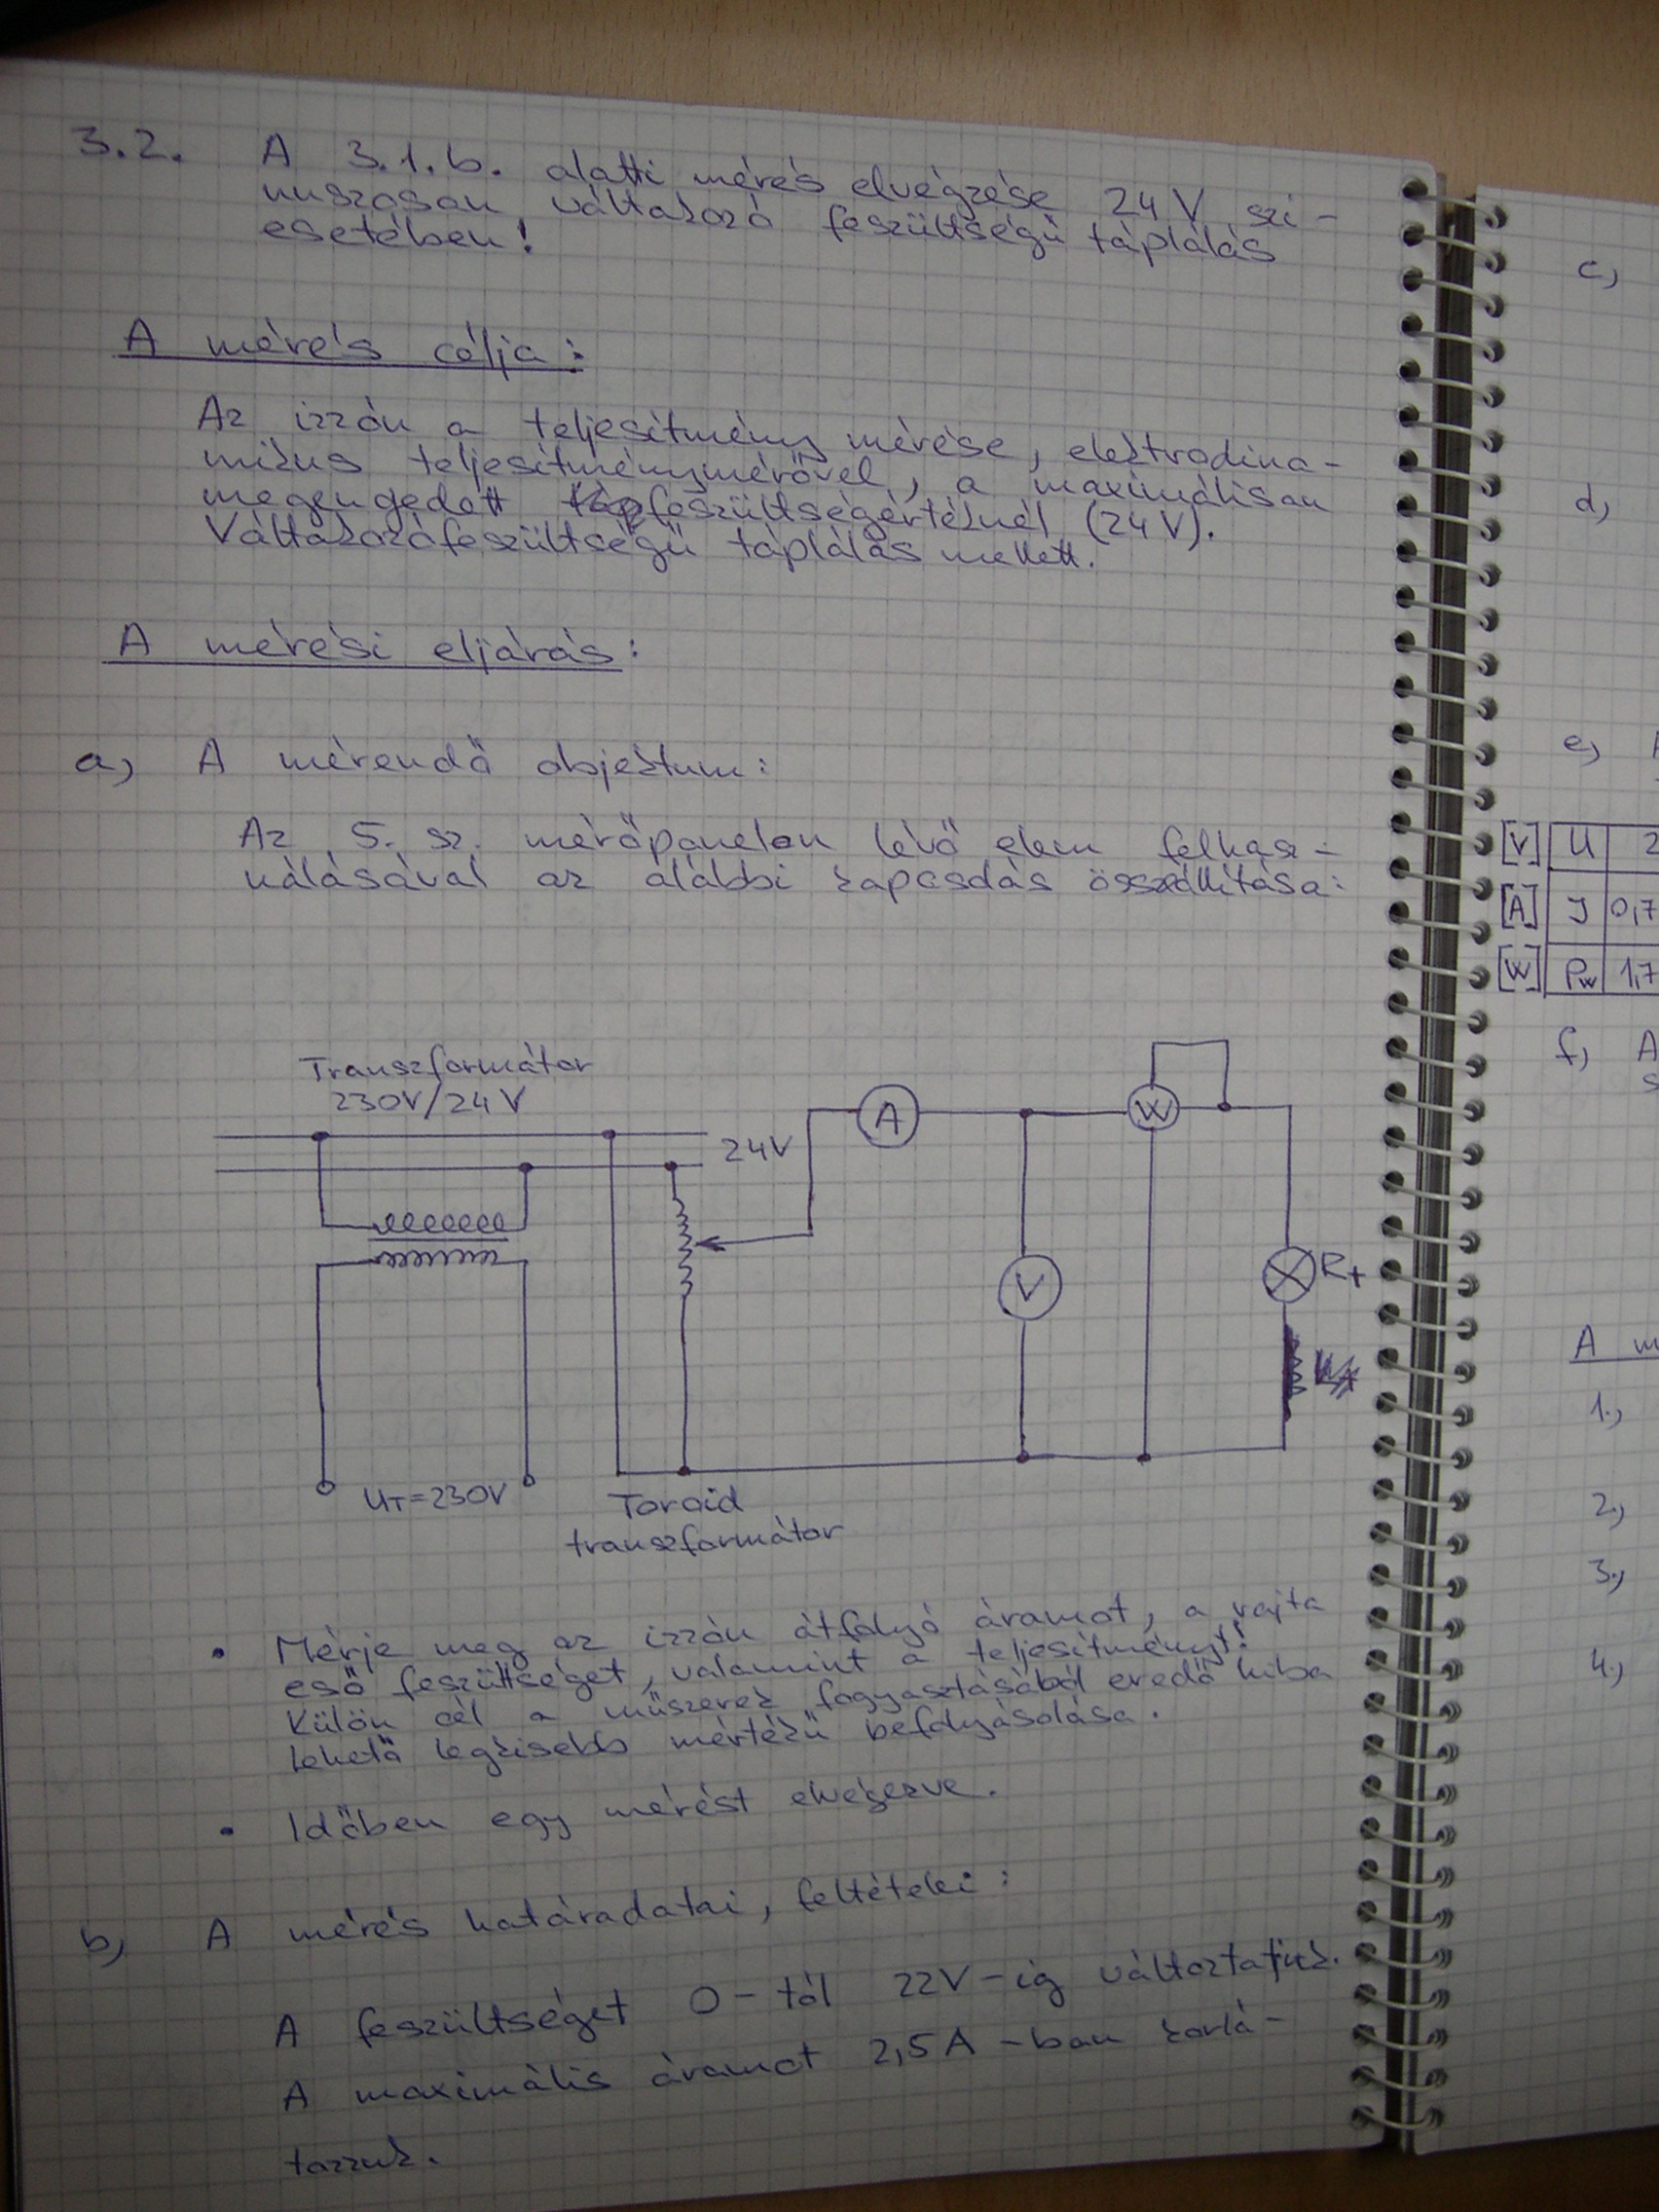 3.2. A 3.1.b. alatti mérés elvégzése 24 V szi-
nuszosan váltakozó feszültségű táplálás
esetében!
A mérés célja:
Az izzón a teljesítmény mérése, elektrodina-
mikus teljesítménymérővel, a maximálisan
megengedett feszültségértéknél (24 V).
Váltakozófeszültségű táplálás mellett.
A mérési eljárás:
a, A mérendő objektum:
Az 5. sz. mérőpanelen lévő elem felhasz-
nálásával az alábbi kapcsolás összeállítása:
Transzformátor
230V/24V
24V
A
W
V
Rt
UT=230V
Toroid
transzformátor
• Mérje meg az izzón átfolyó áramot, a rajta
eső feszültséget, valamint a teljesítményt!
Külön cél a műszerek fogyasztásából eredő hiba
lehető legkisebb mértékű befolyásolása.
• Időben egy mérést elvégezve.
b, A mérés határadatai, feltételei:
A feszültséget 0-tól 22V-ig változtatjuk.
A maximális áramot 2,5A-ban korlá-
tozzuk.
c,
d,
e,
[V] U 2
[A] I 0,7
[W] Pw 1,7
f, A
A m
1.,
2.,
3.,
4.,